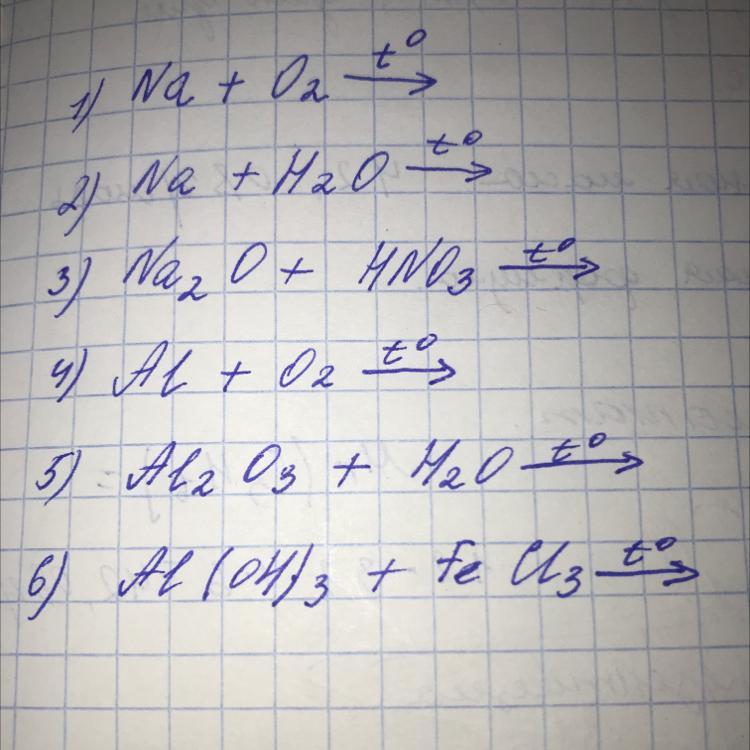 1) Na + O₂ t⁰→
2) Na + H₂O t⁰→
3) Na₂O + HNO₃ t⁰→
4) Al + O₂ t⁰→
5) Al₂O₃ + H₂O t⁰→
6) Al(OH)₃ + FeCl₃ t⁰→